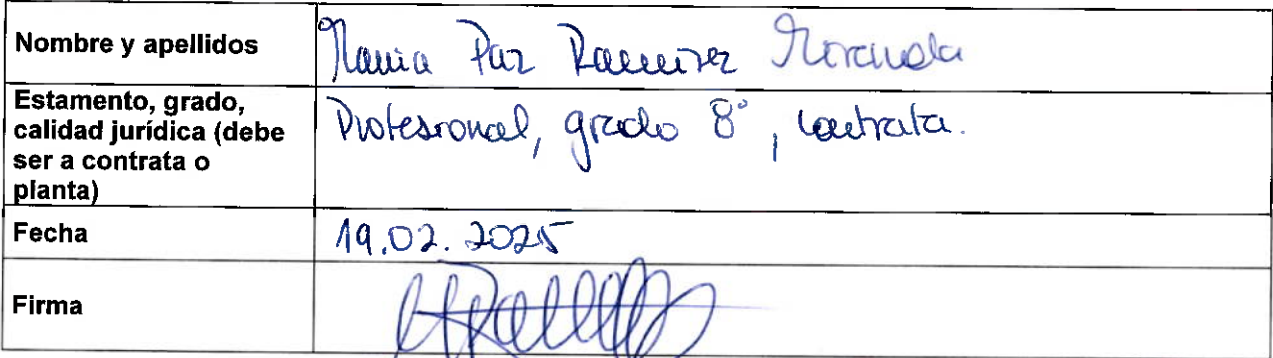 Nombre y apellidos
Maria Paz Ramirez Miranda
Estamento, grado,
calidad jurídica (debe
ser a contrata o
planta)
Profesional, grado 8°, contrata.
Fecha
19.02.2025
Firma